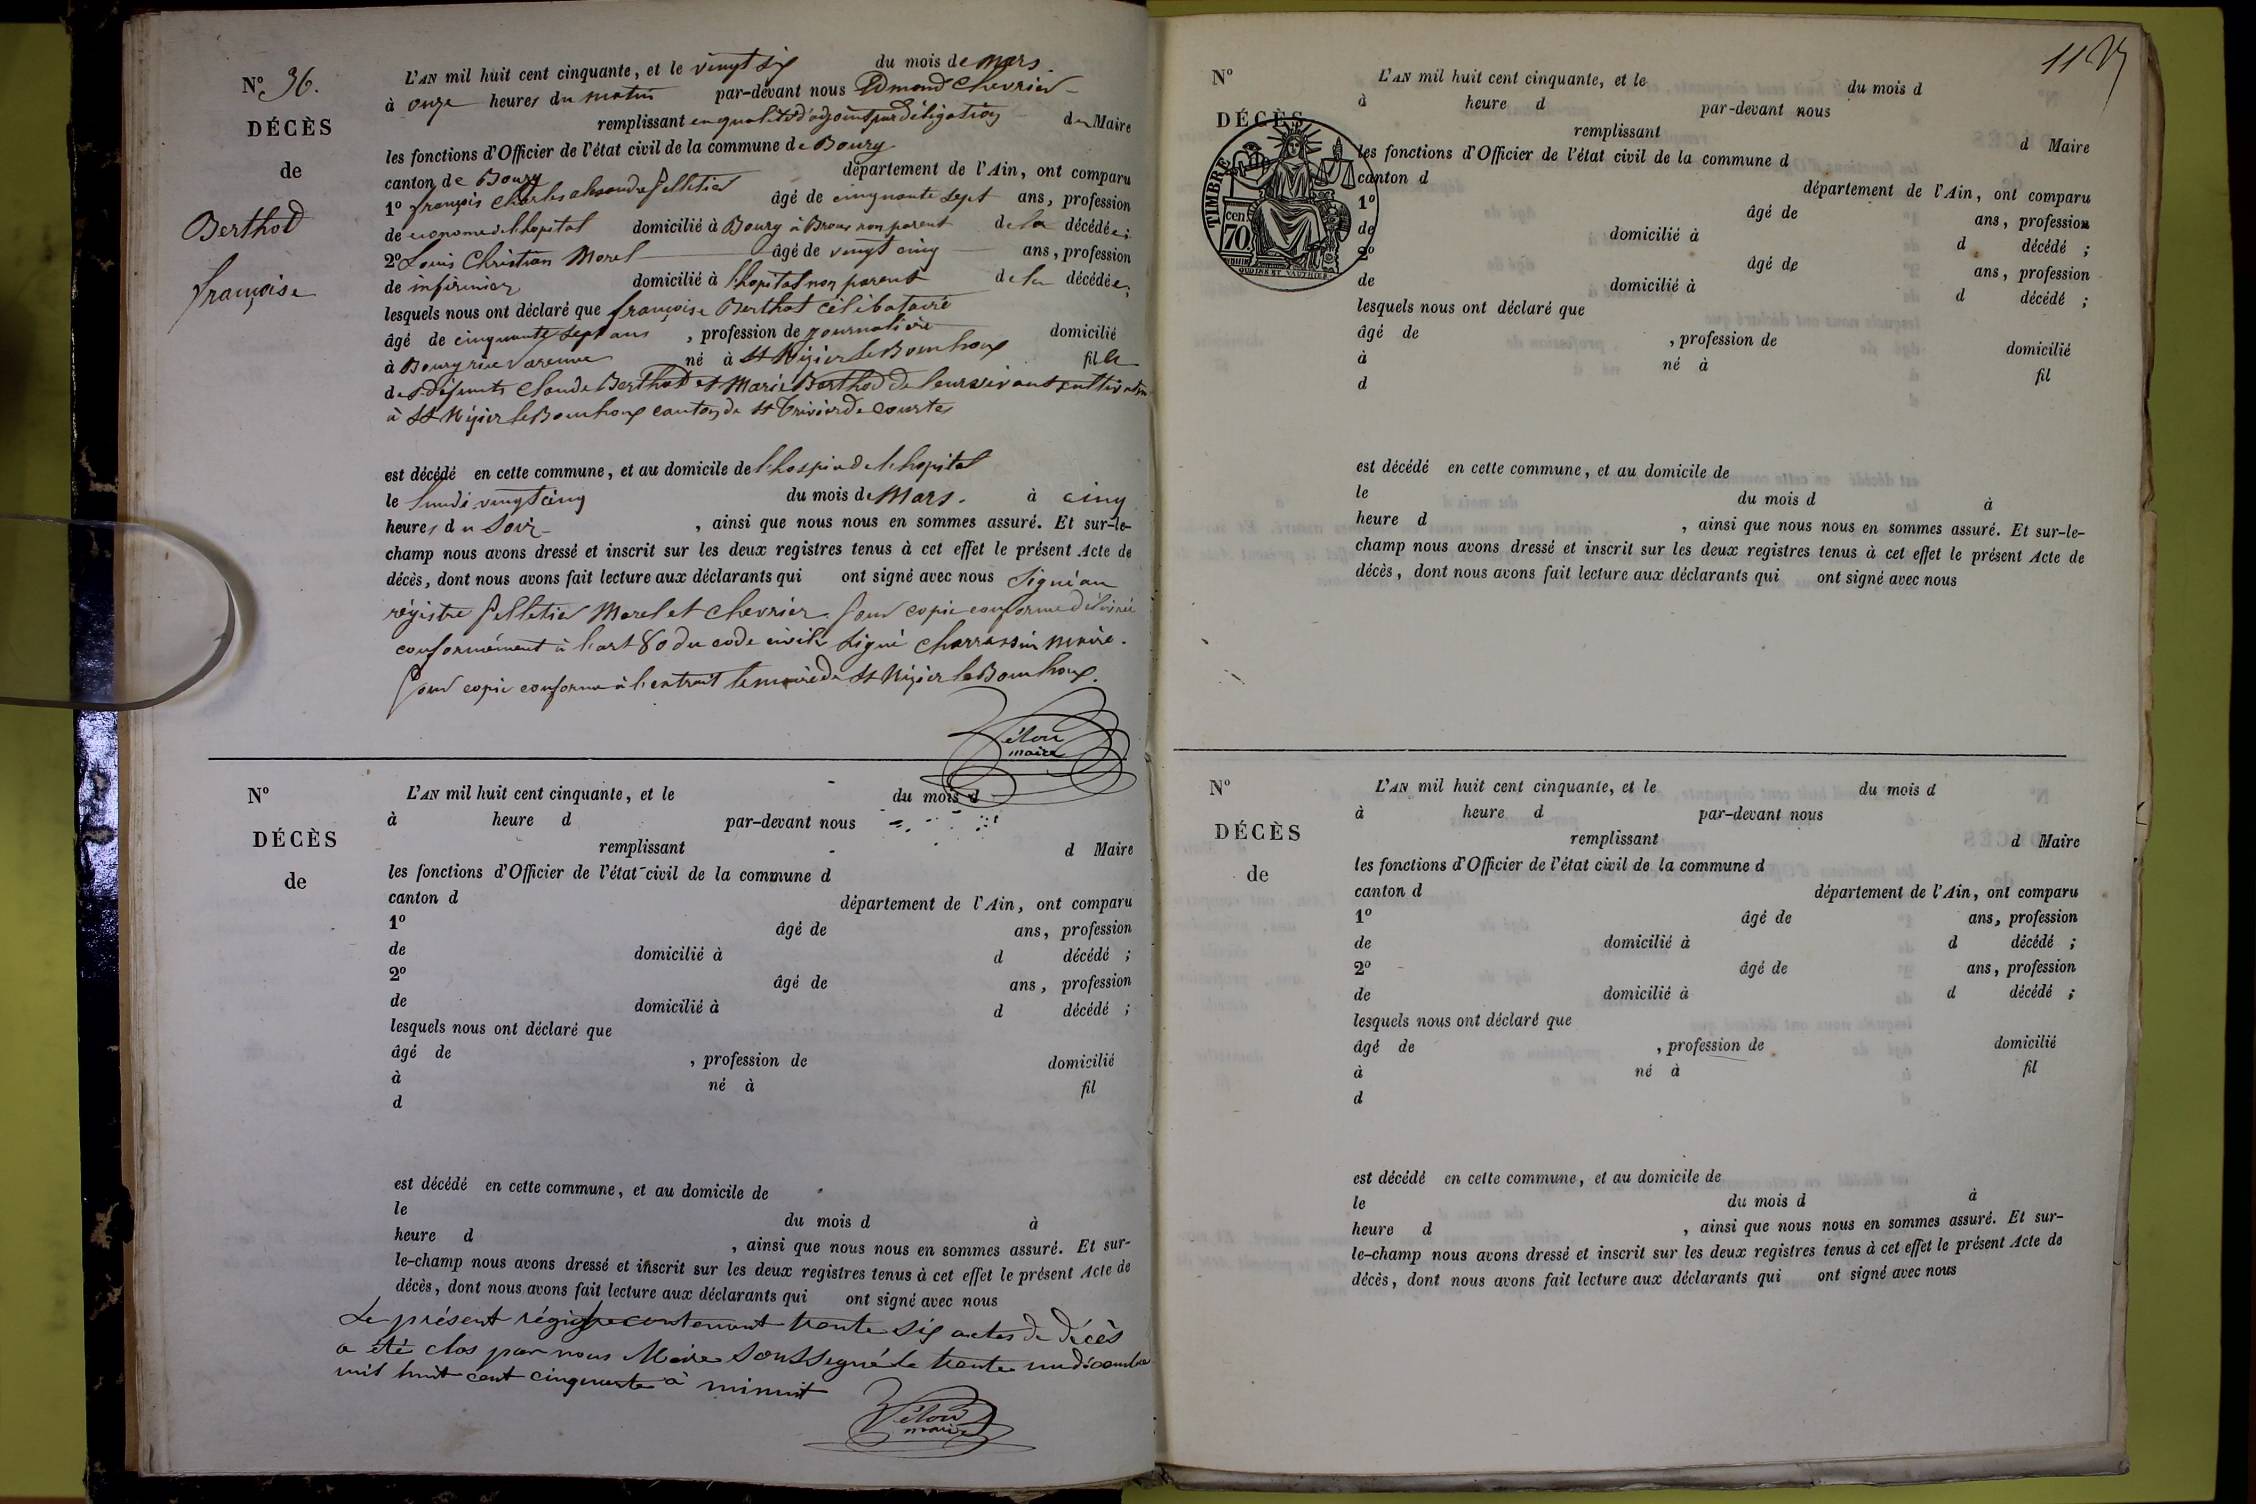 N° 36.
DÉCÈS
de
Berthod
françoise
L'AN mil huit cent cinquante, et le vingt six du mois de mars.
à onze heures du matin par-devant nous Edmond Chevrier
remplissant en qualité d'adjoint par déligation du Maire
les fonctions d'Officier de l'état civil de la commune de Bourg
canton de Bourg département de l'Ain, ont comparu
1° françois Charles pelletier âgé de cinquante sept ans, profession
de econome de l'hopital domicilié à Bourg à Brou non parent de la décédée;
2° Louis Christian Morel âgé de vingt cinq ans, profession
de infirmier domicilié à l'hopital non parent de la décédée;
lesquels nous ont déclaré que françoise Berthod célibataire
âgé de cinquante sept ans, profession de journalière domicilié
à Bourg rue Varenne né à St Nizier le Bouchoux fille
de défunts Claude Berthod et Marie Berthod de leur vivant cultivateurs
à St Nizier le Bouchoux canton de St Trivier de Courtes
est décédé en cette commune, et au domicile de l'hospice de l'hopital
le lundi vingt cinq du mois de Mars. à cinq
heures du soir, ainsi que nous nous en sommes assuré. Et sur-le-
champ nous avons dressé et inscrit sur les deux registres tenus à cet effet le présent Acte de
décès, dont nous avons fait lecture aux déclarants qui ont signé avec nous signé au
régistre pelletier Morel et Chevrier. pour copie conforme délivrée
conformément à l'art 80 du code civile signé Charrassin maire.
pour copie conforme à l'extrait le maire de St Nizier le Bouchoux.
maire
N°
DÉCÈS
de
L'AN mil huit cent cinquante, et le du mois d
à heure d par-devant nous
remplissant d Maire
les fonctions d'Officier de l'état civil de la commune d
canton d département de l'Ain, ont comparu
1° âgé de ans, profession
de domicilié à d décédé ;
2° âgé de ans, profession
de domicilié à d décédé ;
lesquels nous ont déclaré que
âgé de , profession de domicilié
à né à fil
d
est décédé en cette commune, et au domicile de
le du mois d à
heure d , ainsi que nous nous en sommes assuré. Et sur-
le-champ nous avons dressé et inscrit sur les deux registres tenus à cet effet le présent Acte de
décès, dont nous avons fait lecture aux déclarants qui ont signé avec nous
Le présent régistre contenant trente six actes de décès
a été clos par nous Maire soussigné le trente un décembre
mil huit cent cinquante à minuit
maire
11
N°
DÉCÈS
TIMBRE
70 cen
OUDINÉ ET VAUTHIER
L'AN mil huit cent cinquante, et le du mois d
à heure d par-devant nous
remplissant d Maire
les fonctions d'Officier de l'état civil de la commune d
canton d département de l'Ain, ont comparu
1° âgé de ans, profession
de domicilié à d décédé ;
2° âgé de ans, profession
de domicilié à d décédé ;
lesquels nous ont déclaré que
âgé de , profession de domicilié
à né à fil
d
est décédé en cette commune, et au domicile de
le du mois d à
heure d , ainsi que nous nous en sommes assuré. Et sur-le-
champ nous avons dressé et inscrit sur les deux registres tenus à cet effet le présent Acte de
décès, dont nous avons fait lecture aux déclarants qui ont signé avec nous
N°
DÉCÈS
de
L'AN mil huit cent cinquante, et le du mois d
à heure d par-devant nous
remplissant d Maire
les fonctions d'Officier de l'état civil de la commune d
canton d département de l'Ain, ont comparu
1° âgé de ans, profession
de domicilié à d décédé ;
2° âgé de ans, profession
de domicilié à d décédé ;
lesquels nous ont déclaré que
âgé de , profession de domicilié
à né à fil
d
est décédé en cette commune, et au domicile de
le du mois d à
heure d , ainsi que nous nous en sommes assuré. Et sur-
le-champ nous avons dressé et inscrit sur les deux registres tenus à cet effet le présent Acte de
décès, dont nous avons fait lecture aux déclarants qui ont signé avec nous